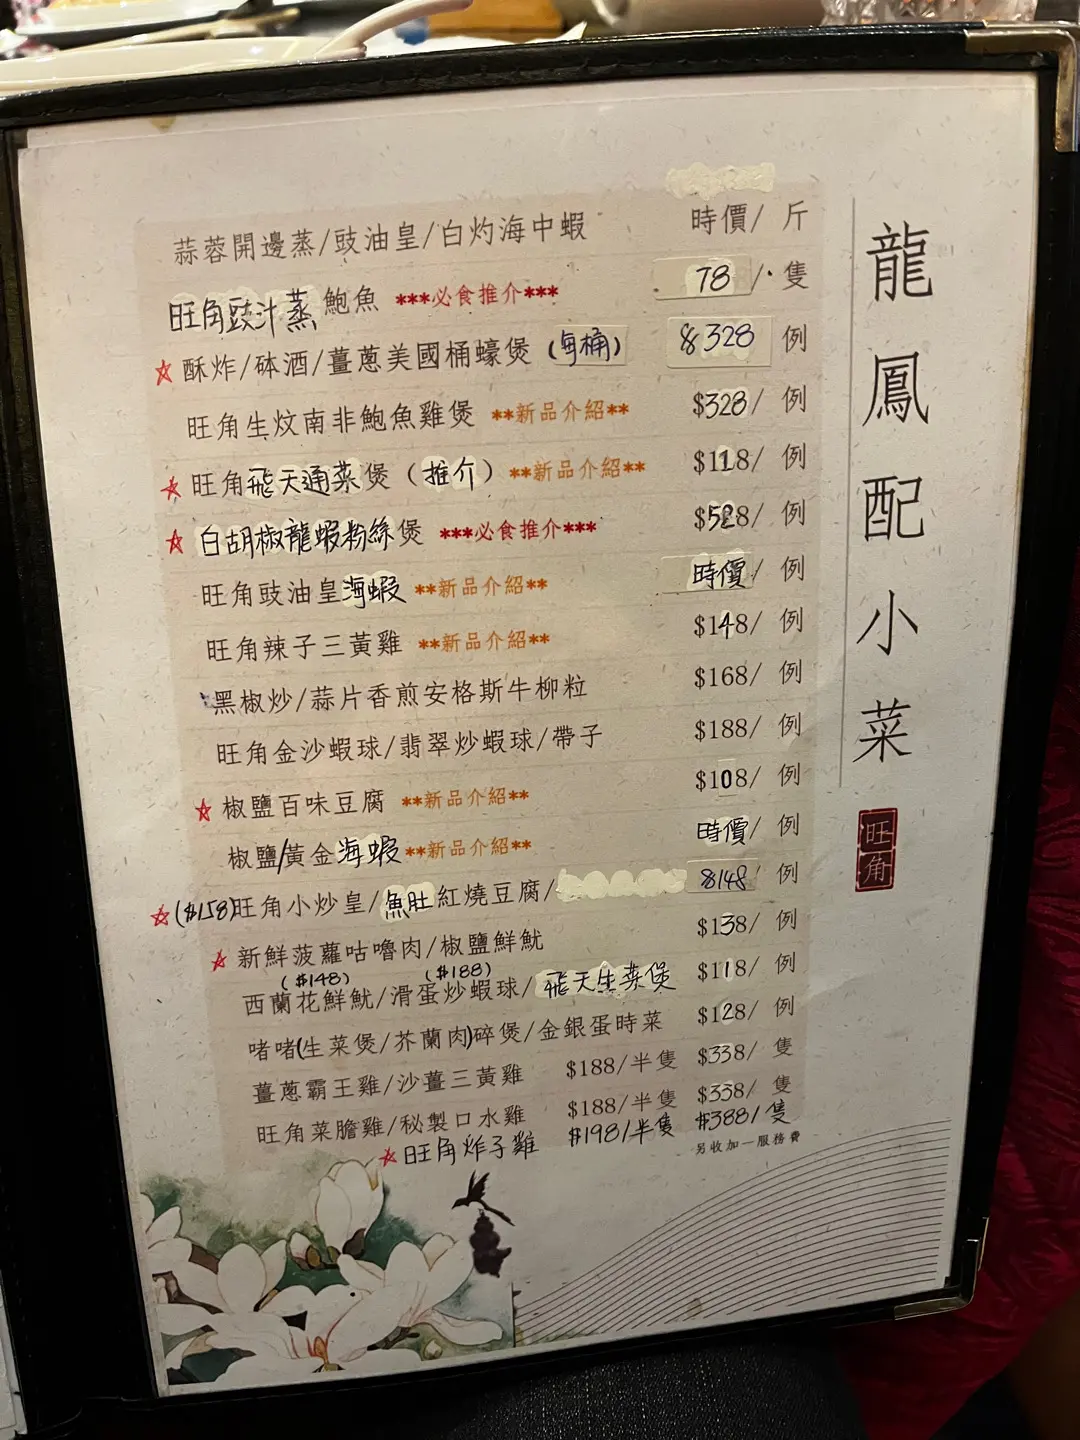 龍鳳配小菜
旺角
蒜蓉開邊蒸/豉油皇/白灼海中蝦 時價/ 斤
旺角豉汁蒸鮑魚 ***必食推介*** 78 / 隻
☆ 酥炸/砵酒/薑蔥美國桶蠔煲 (每桶) $328 例
旺角生炆南非鮑魚雞煲 **新品介紹** $328/ 例
☆ 旺角飛天通菜煲 (推介) **新品介紹** $118/ 例
☆ 白胡椒龍蝦粉絲煲 ***必食推介*** $528/ 例
旺角豉油皇海蝦 **新品介紹** 時價/ 例
旺角辣子三黃雞 **新品介紹** $148/ 例
黑椒炒/蒜片香煎安格斯牛柳粒 $168/ 例
旺角金沙蝦球/翡翠炒蝦球/帶子 $188/ 例
☆ 椒鹽百味豆腐 **新品介紹** $108/ 例
椒鹽/黃金海蝦 **新品介紹** 時價/ 例
☆ ($158)旺角小炒皇/魚肚紅燒豆腐/ $148/ 例
☆ 新鮮菠蘿咕嚕肉/椒鹽鮮魷 $138/ 例
($148) ($188)
西蘭花鮮魷/滑蛋炒蝦球/飛天生菜煲 $118/ 例
啫啫(生菜煲/芥蘭肉)碎煲/金銀蛋時菜 $128/ 例
薑蔥霸王雞/沙薑三黃雞 $188/半隻 $338/ 隻
旺角菜膽雞/秘製口水雞 $188/半隻 $338/ 隻
☆ 旺角炸子雞 $198/半隻 $388/隻
另收加一服務費